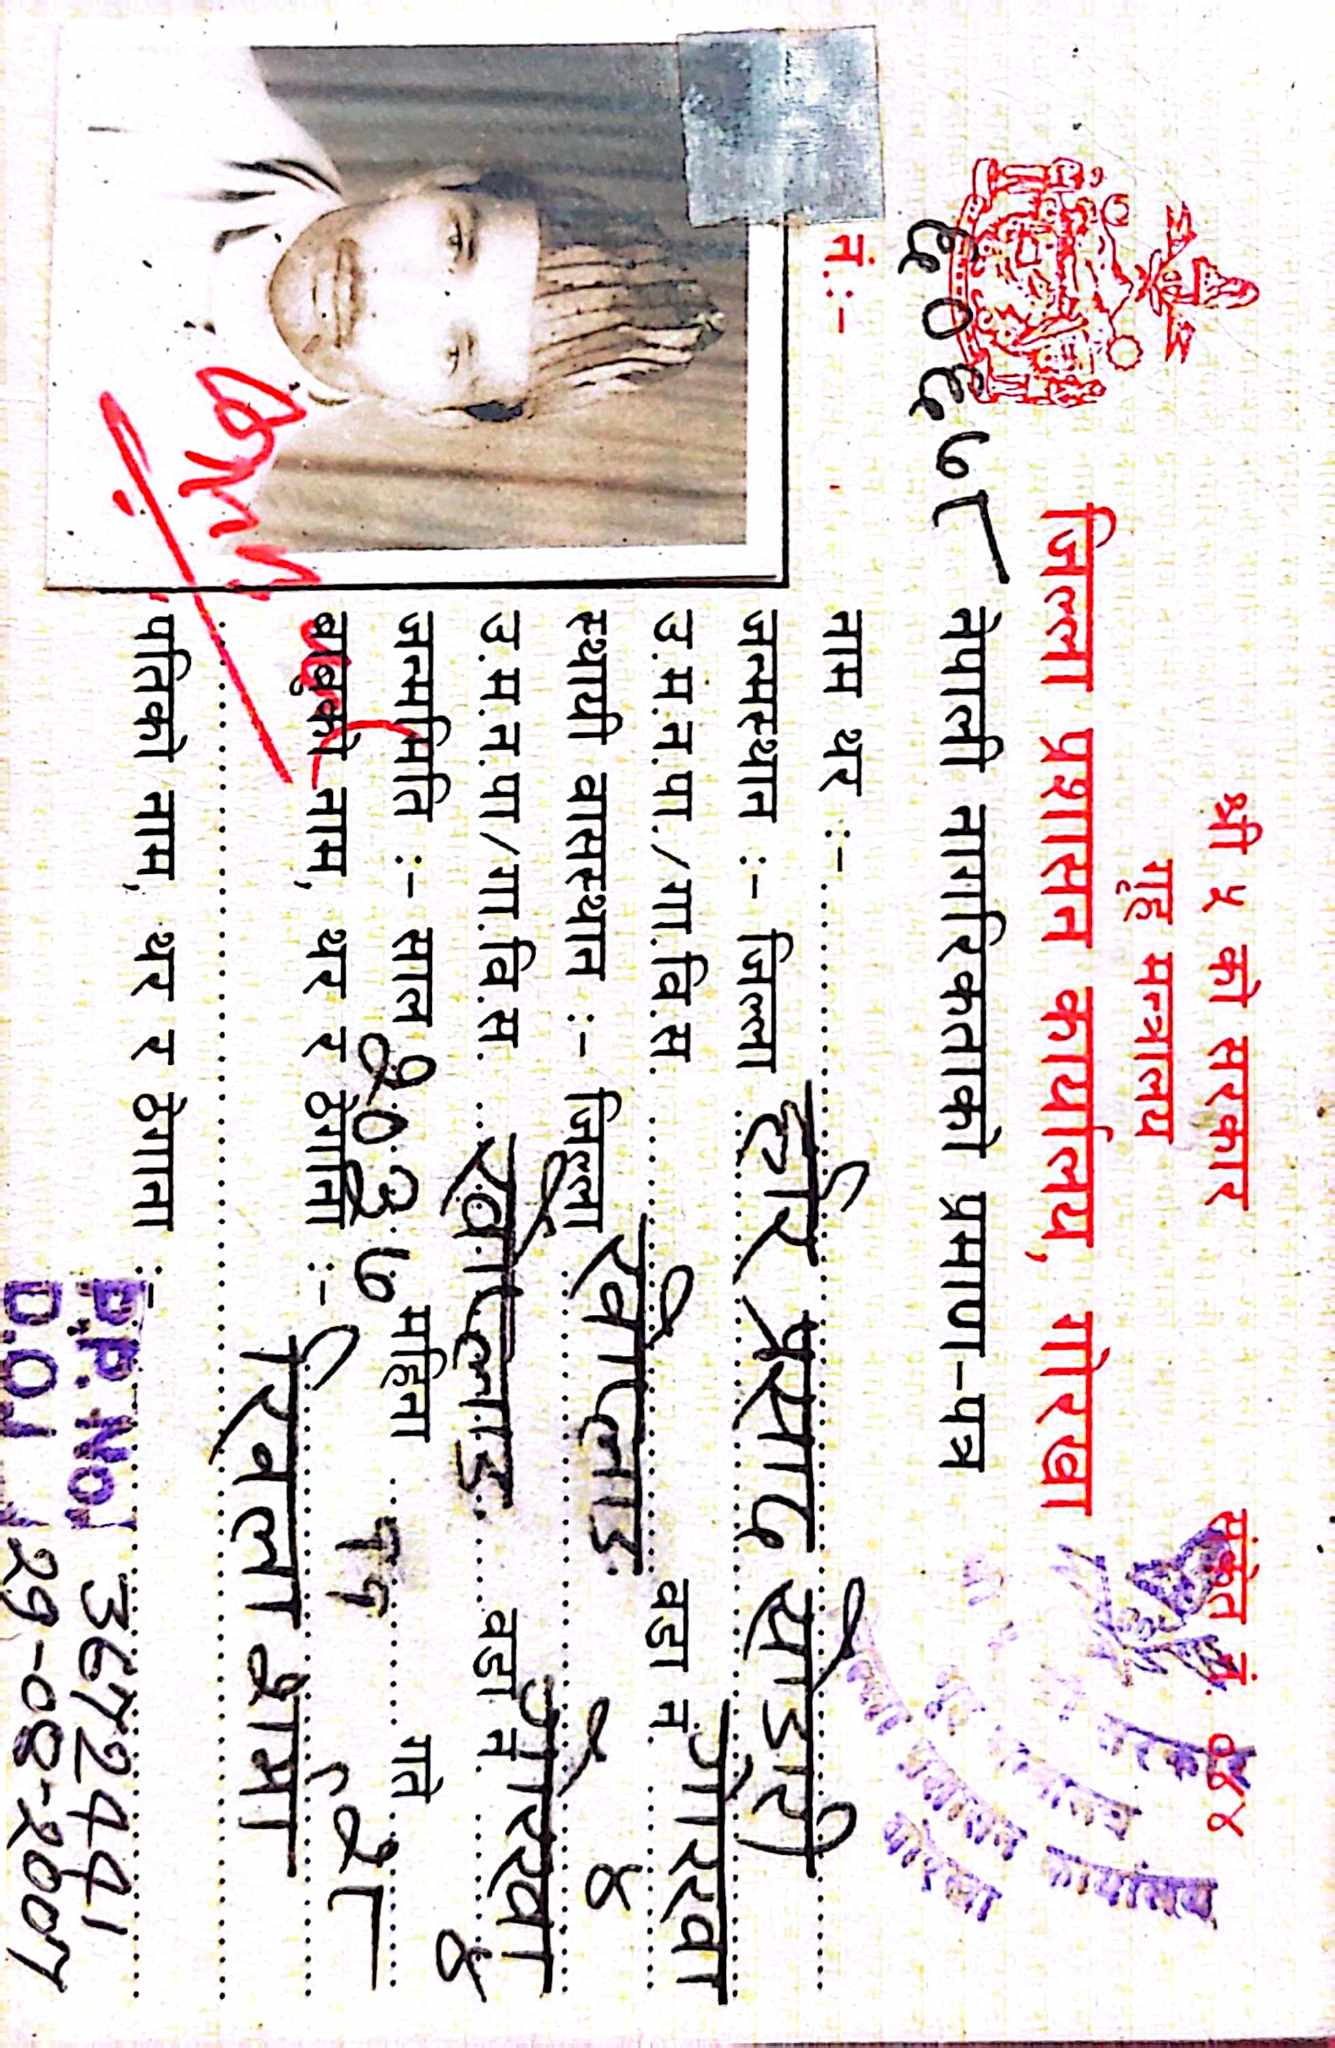 श्री ५ को सरकार
गृह मन्त्रालय
संकेत नं. ०४४
जिल्ला प्रशासन कार्यालय, गोरखा
नं.:- ६०६७८
नेपाली नागरिकताको प्रमाण-पत्र
नाम थर :- हरि प्रसाद
जन्मस्थान :- जिल्ला गोरखा
उ.म.न.पा./गा.वि.स. खोप्लाङ वडा नं. ४
स्थायी वासस्थान :- जिल्ला गोरखा
उ.म.न.पा/गा.वि.स. खोप्लाङ वडा नं. ४
जन्ममिति :- साल २०३७ महिना गते २८
बाबुको नाम, थर र ठेगाना :-
पतिको नाम, थर र ठेगाना :
P.P. No. 3672441
D.O.I. 29-08-2007
जिल्ला प्रशासन कार्यालय
गोरखा